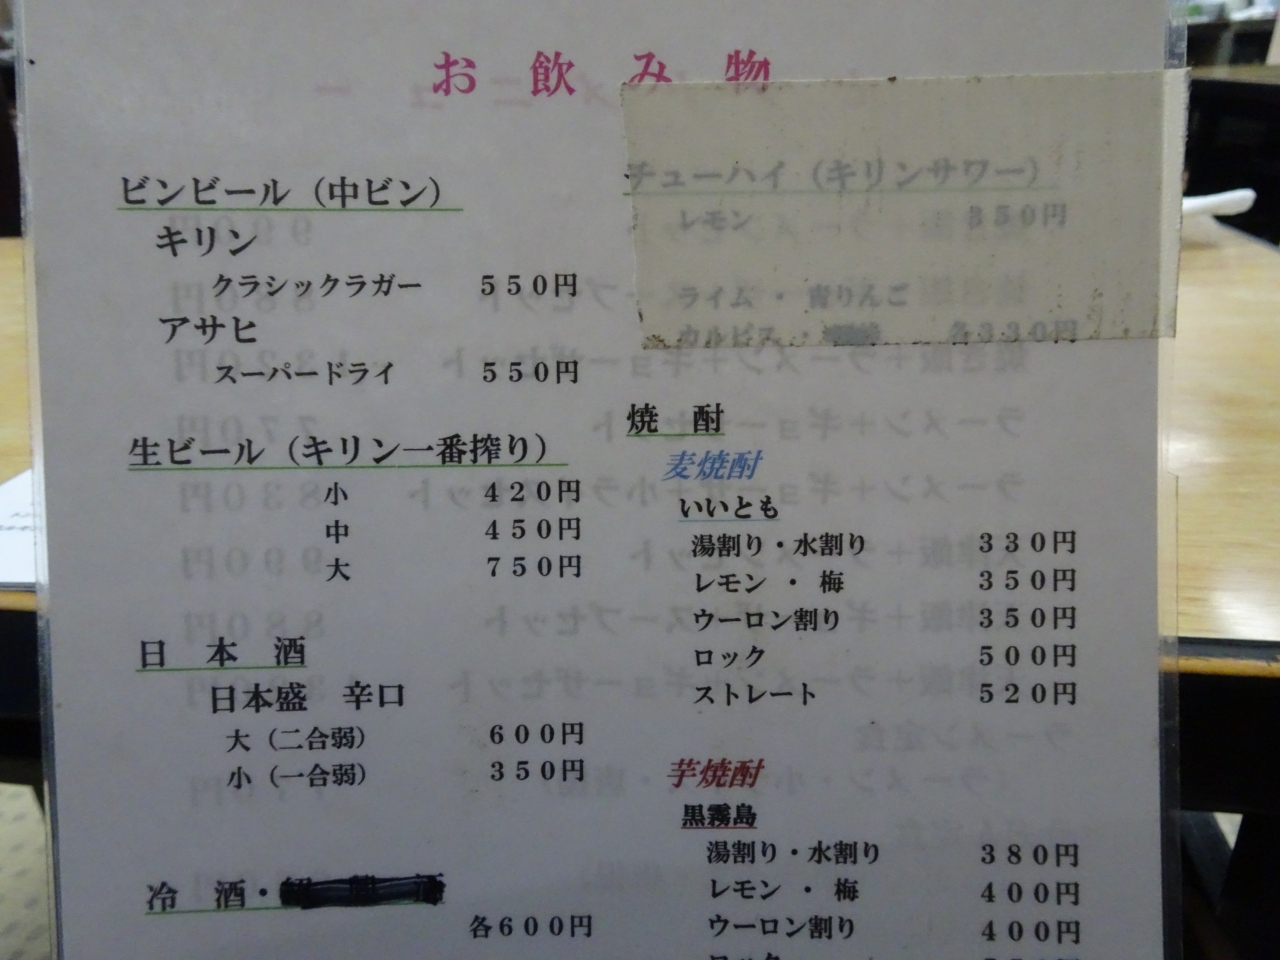 お飲み物
ビンビール（中ビン）
キリン
クラシックラガー　５５０円
アサヒ
スーパードライ　５５０円
生ビール（キリン一番搾り）
小　４２０円
中　４５０円
大　７５０円
日本酒
日本盛　辛口
大（二合弱）　６００円
小（一合弱）　３５０円
冷酒・
各６００円
チューハイ（キリンサワー）
レモン　３５０円
ライム・青りんご
カルピス・　各３３０円
焼酎
麦焼酎
いいとも
湯割り・水割り　３３０円
レモン・梅　３５０円
ウーロン割り　３５０円
ロック　５００円
ストレート　５２０円
芋焼酎
黒霧島
湯割り・水割り　３８０円
レモン・梅　４００円
ウーロン割り　４００円